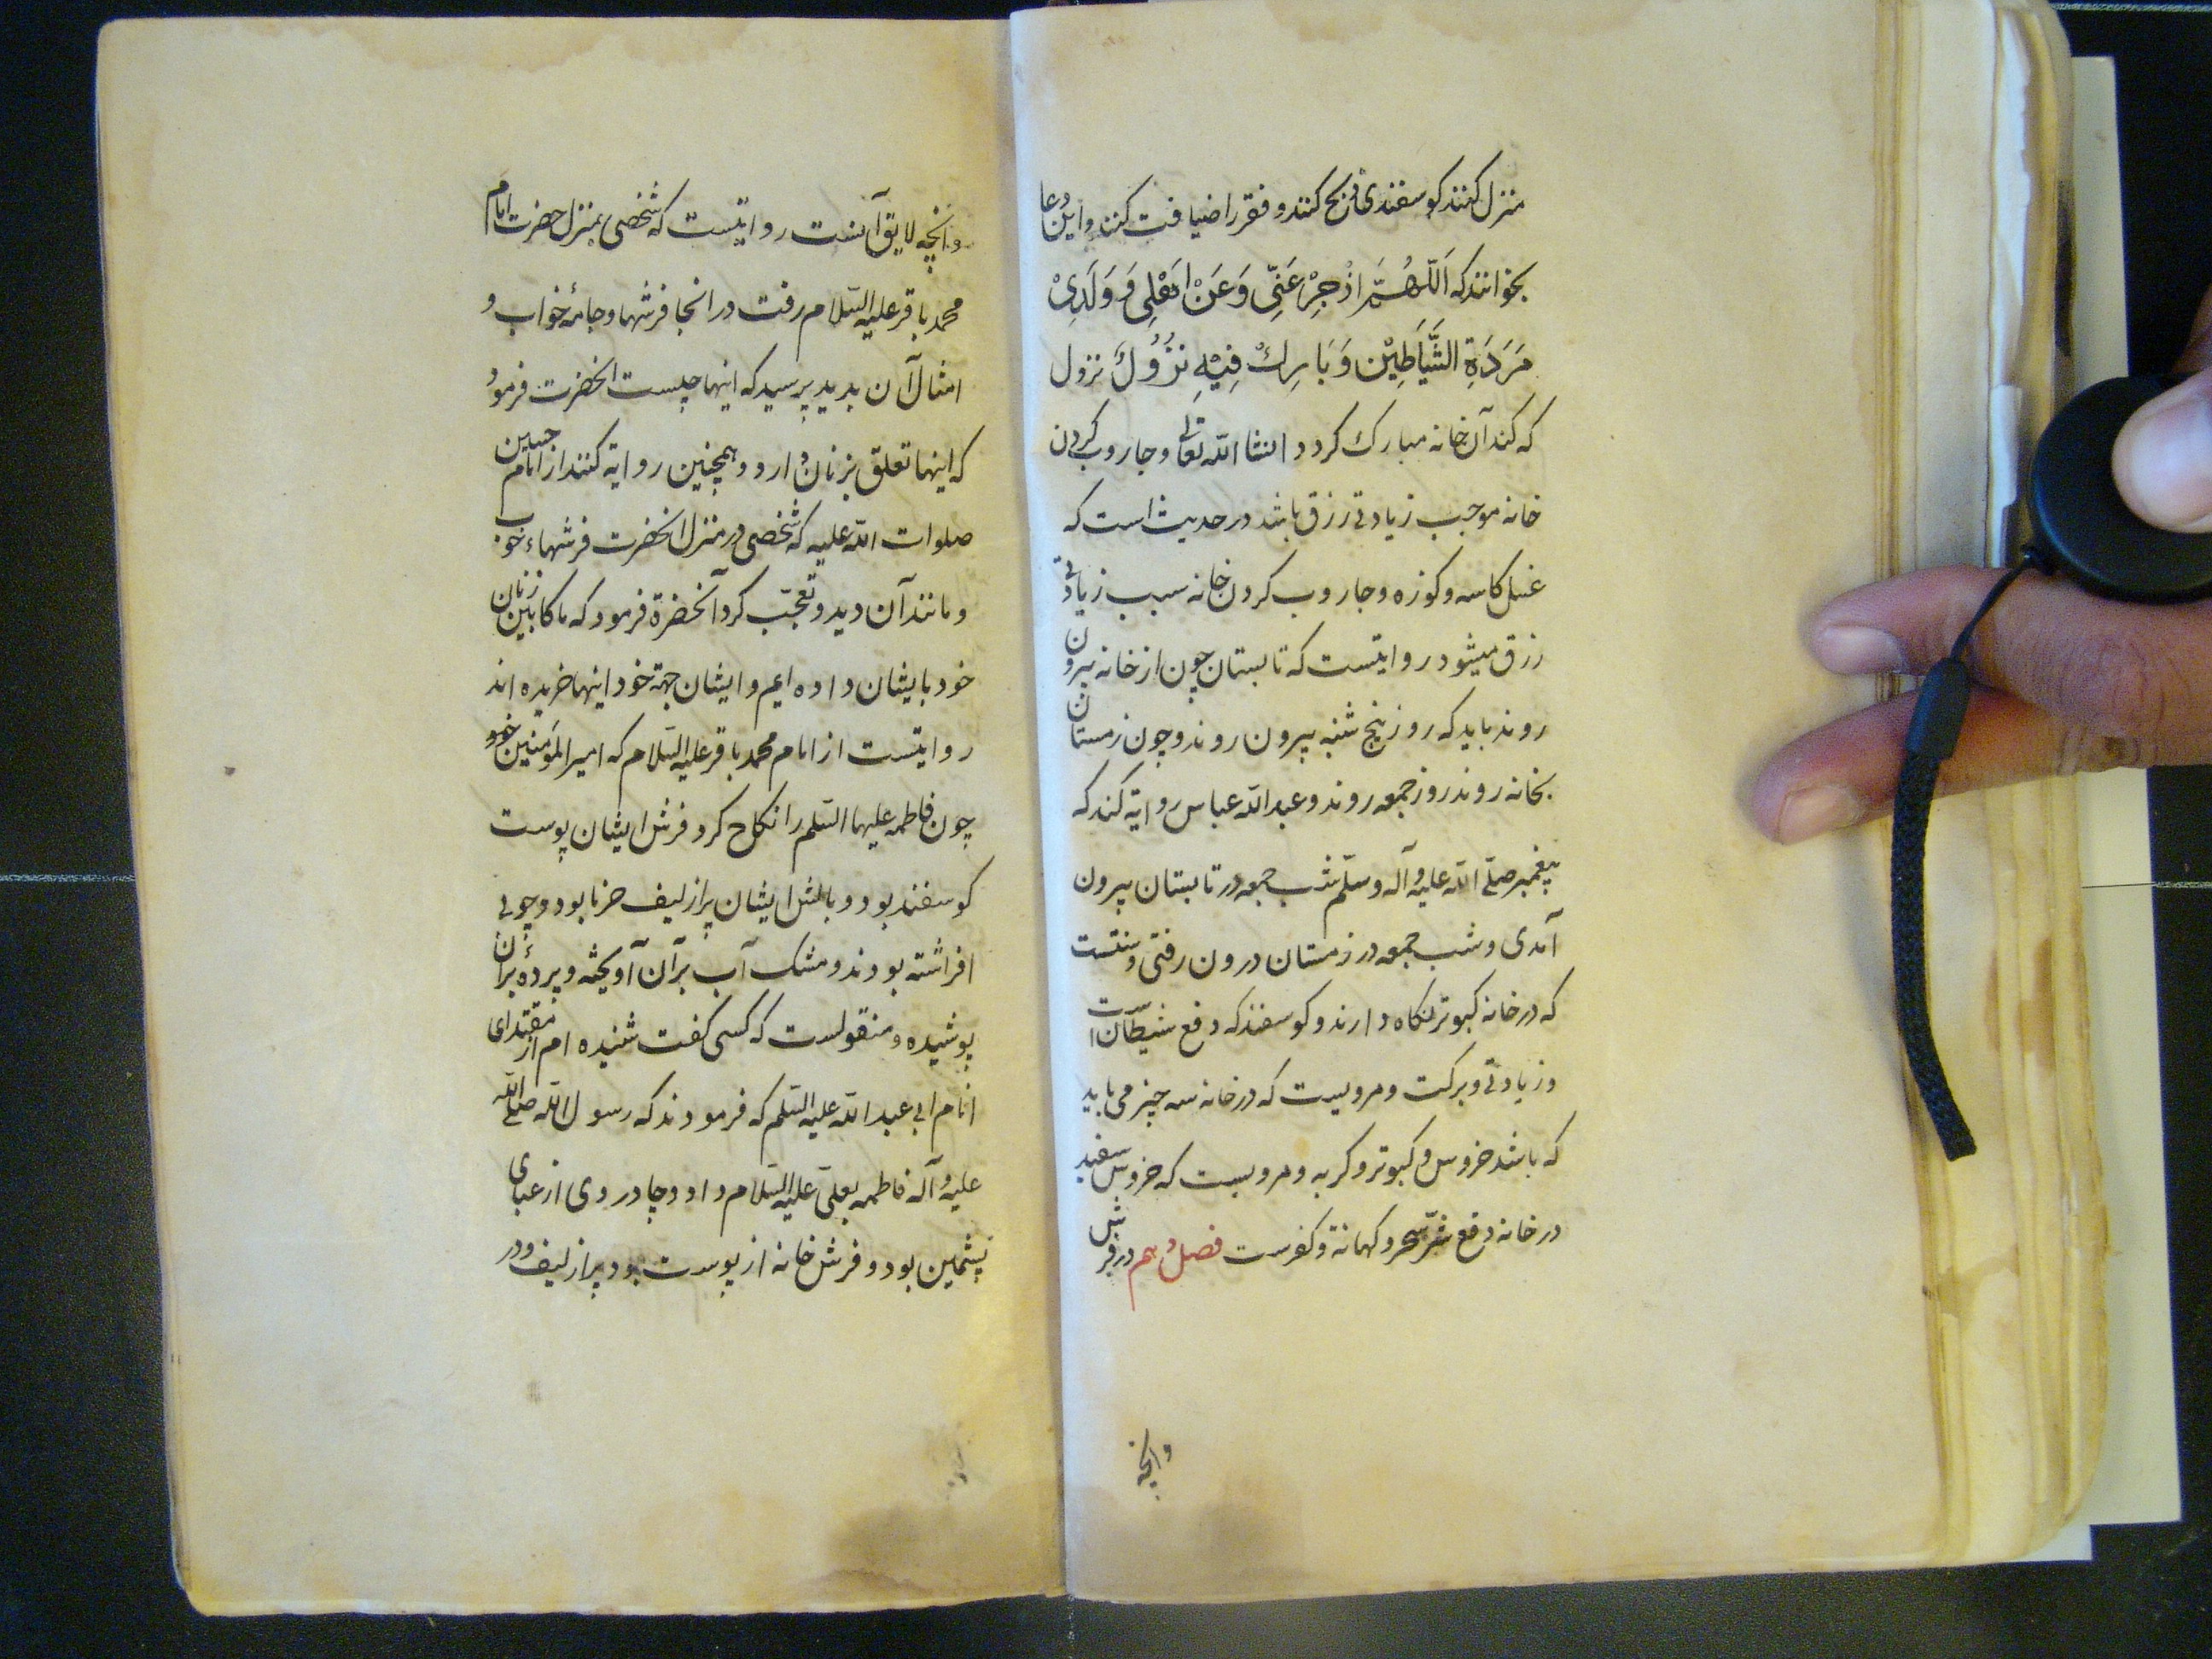 منزل کنند کوسفندی ذبح کنند و فقرا ضیافت کنند و این دعا
بخوانند که اَللّهُمَّ ازْجِرْ عَنّی وَعَنْ اَهْلی وَ وَلَدیْ
مَرَدَةِ الشَّیَاطِیْن وَبَارِكْ فِیْهِ نزُوُلَ نزول
که کند آن خانه مبارک کردد انشا الله تعالی و جاروب کردن
خانه موجب زیادتی رزق باشد در حدیث است که
غسل کاسه و کوزه و جاروب کردن خانه سبب زیادتی
رزق میشود روایتست که تابستان چون از خانه بیرون
روند باید که روز پنج شنبه بیرون روند و چون زمستان
بخانه روند روز جمعه روند و عبدالله عباس روایة کند که
پیغمبر صلی الله علیه و آله و سلم شب جمعه در تابستان بیرون
آمدی و شب جمعه در زمستان درون رفتی و سنتست
که در خانه کبوتر نکاه دارند و کوسفند که دفع شیطان است
و زیادتی و برکت و مرویست که در خانه سه چیز می باید
که باشد خروس و کبوتر و کربه و مرویست که خروس سفید
در خانه دفع شرّ سحر و کهانة و کفرست فصل دهم در فرش
وانچه
وانچه لایق آنست روایتست که شخصی بمنزل حضرت امام
محمد باقر علیه السلام رفت در انجا فرشها و جامهٔ خواب و
امثال آن بدید پرسید که اینها چیست انحضرت فرمود
که اینها تعلق بزنان دارد و همچنین روایة کنند از امام حسین
صلوات الله علیه که شخصی در منزل انحضرت فرشهاء خوب
و مانند آن دید و تعجّب کرد آنحضرة فرمود که ما کابین زنان
خود بایشان داده ایم و ایشان جهة خود اینها خریده اند
روایتست از امام محمد باقر علیه السلام که امیرالمؤمنین خود
چون فاطمه علیهما السلم را نکاح کرد فرش ایشان پوست
کوسفند بود و بالش ایشان پر از لیف خرما بود و چوبی
افراشته بودند و مشک آب بر آن آویخته و پرده بر آن
پوشیده و منقولست که کسی کفت شنیده ام از مقتدای
انام ابی عبدالله علیه السلم که فرمودند که رسول الله صلی الله
علیه و آله فاطمه بعلی علیه السلام داد و چادر وی از عبای
پشمین بود و فرش خانه از پوست بود پر از لیف و در